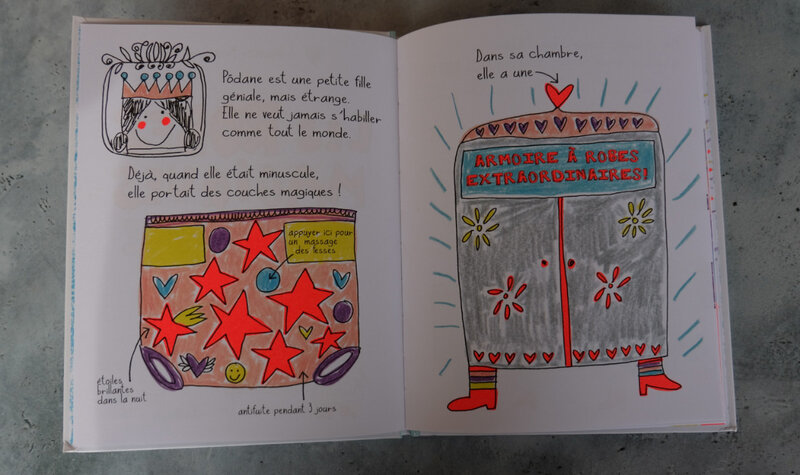 Pôdane est une petite fille
géniale, mais étrange.
Elle ne veut jamais s'habiller
comme tout le monde.
Déjà, quand elle était minuscule,
elle portait des couches magiques !
appuyer ici pour
un massage
des fesses
étoiles
brillantes
dans la nuit
antifuite pendant 3 jours
Dans sa chambre,
elle a une
ARMOIRE À ROBES
EXTRAORDINAIRES!